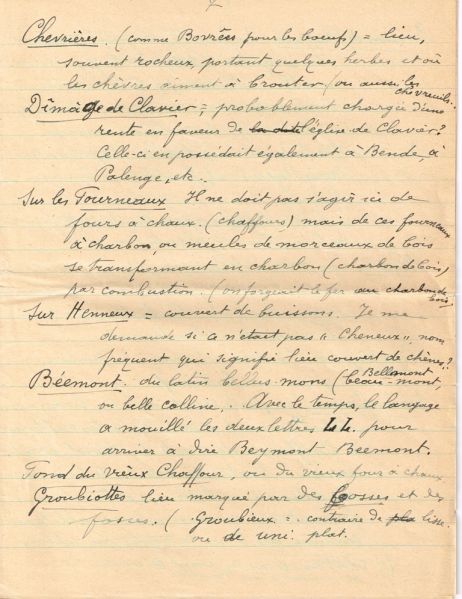 7
Chevrières. (comme Bovrées pour les boeufs) = lieu,
souvent rocheux, portant quelques herbes et où
les chèvres aiment à brouter (ou aussi les
chevreuils.
Dîmage de Clavier = probablement chargée d'une
rente en faveur de l'église de Clavier?
Celle-ci en possédait également à Bende, à
Palenge, etc.
Sur les Fourneaux Il ne doit pas s'agir ici de
fours à chaux. (chaffours) mais de ces fourneaux
à charbon, ou meules de morceaux de bois
se transformant en charbon (charbon de bois)
par combustion. (on forgeait le fer au charbon de
bois)
Sur Henneux = couvert de buissons. Je me
demande si ce n'était pas "Cheneux", nom
fréquent qui signifie lieu couvert de chênes?
Bellemont
Béemont. du latin bellus-mons (beau-mont,
ou belle colline. Avec le temps, le langage
a mouillé les deux lettres LL. pour
arriver à dire Beymont Beemont.
Fond du vieux Chaffour, ou du vieux four à chaux
Groubiottes lieu marqué par des bosses et des
fosses. ( Groubieux = contraire de pla lisse
ou de uni. plat.